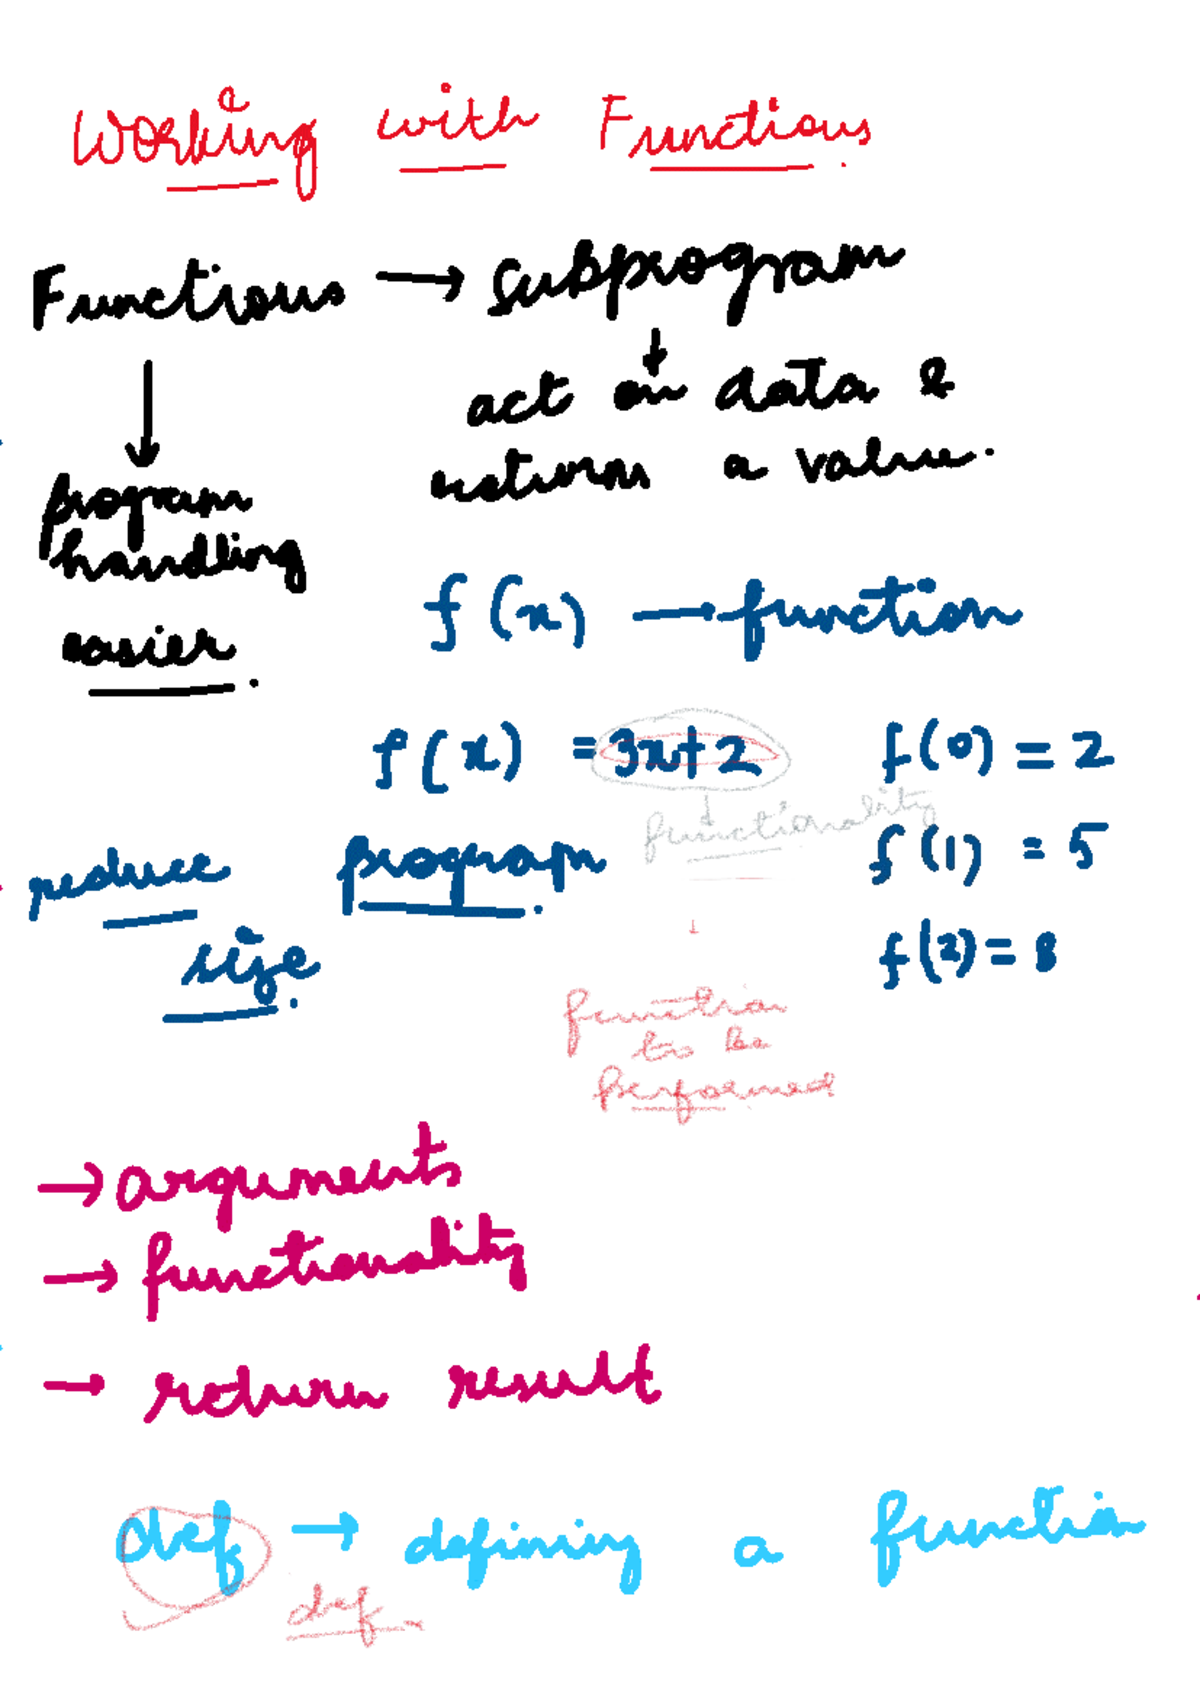 Working with Functions
Functions → subprogram
↓
act on data &
returns a value.
↓
program
handling
easier.
f(x) → function
f(x) = 3x+2
f(0) = 2
↓
functionality
f(1) = 5
reduce program
size.
f(2) = 8
↓
function
to be
performed
→ arguments
→ functionality
→ return result
def → defining a function
def